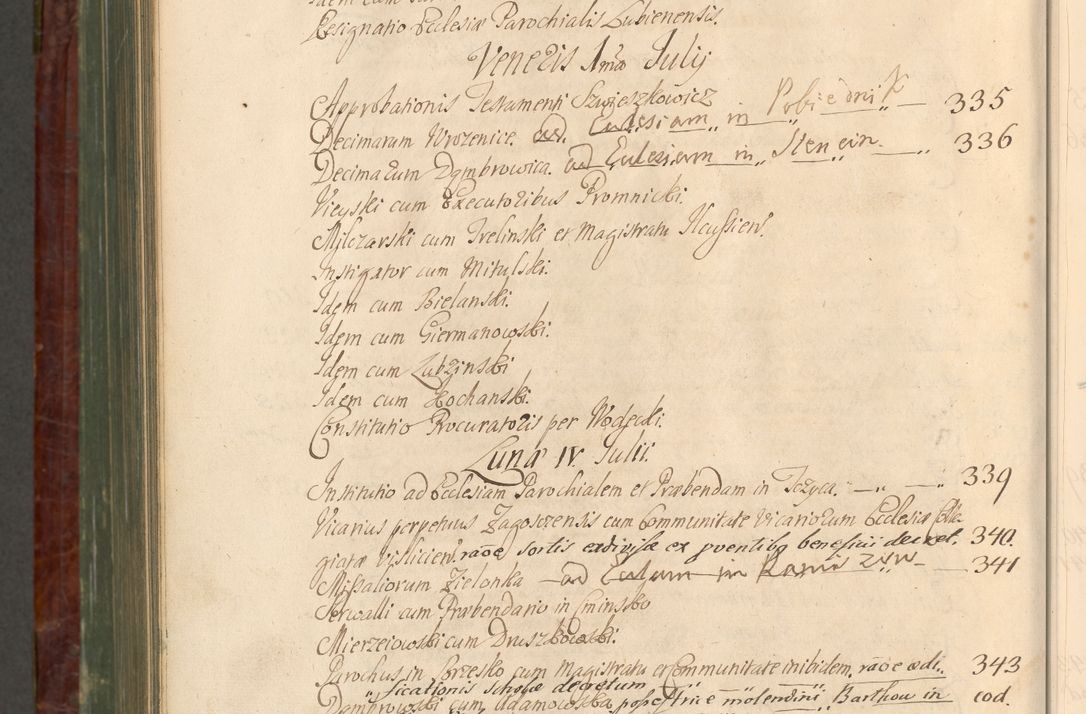 Resignatio Ecclesiæ Parochialis Lubienensis.
Veneris 1ma Julij
Approbationis Testamenti Szwieszkowicz
Decimarum Wrozenice. ad Ecclesiam in Pobiednik — 335
Decimarum Dąmbrowica. ad Ecclesiam in Stenein. — 336
Vieyski cum Executoribus Promnicki.
Milczarski cum Trelinski et Magistratu Ilcussien.
Instigator cum Mitulski.
Idem cum Bielanski.
Idem cum Giermanowski.
Idem cum Lubzinski
Idem cum Hochanski.
Constitutio Procuratoris per Wodecki.
Luna IV. Julii.
Institutio ad Ecclesiam Parochialem et Præbendam in Tczyca. — 339
Vicarius perpetuus Zagoscensis cum Communitate Vicariorum Ecclesiæ Colle
giatæ Vislicien. raōe sortis exdivisæ ex pventibq beneficii decret. 340.
Missaliorum Zielonka — ad in — 341
Serwalli cum Præbendario in Cminsko
Mierzeiowski cum Druszkowski.
Parochus in Brzesko cum Magistratu et Communitate inibidem. raōe ædi. 343
ficationis scholæ decretum
Dąmbrowski cum Adamowska molendini Barthow in eod.